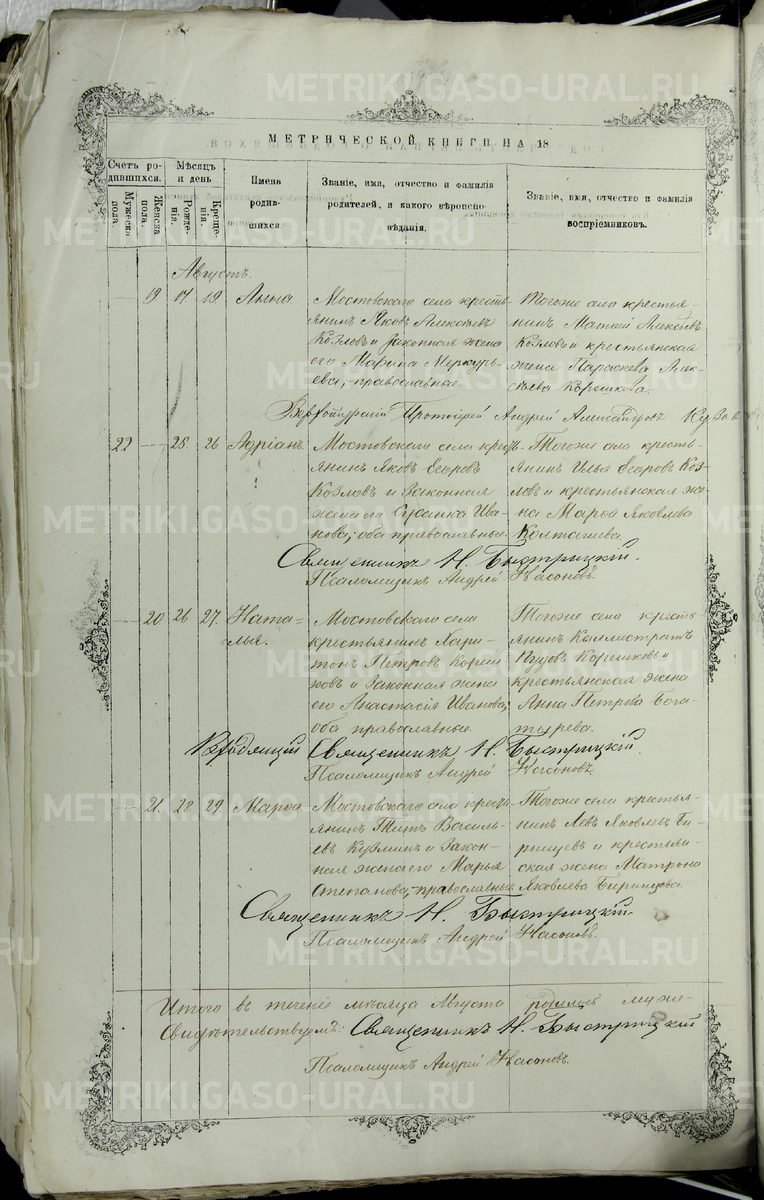 МЕТРИЧЕСКОЙ КНИГИ НА 18
Счетъ родившихся.
Мужеска пола
Женска пола.
Мѣсяцъ и день
Рожденія.
Крещенія.
Имена родившихся
Званіе, имя, отчество и фамилія родителей, и какого вѣроисповѣданія.
Званіе, имя, отчество и фамилія воспріемниковъ.
Августъ.
19 17 19 Анна
Мостовскаго села кресть-
янинъ Яковъ Алексѣевъ
Козловъ и законная жена
его Марина Меркурь-
ева, православные.
Тогоже села крестья-
нинъ Матѳей Алексѣевъ
Козловъ и крестьянская
жена Параскева Алек-
сѣева Корешкова.
Протоіерей Андрей Александровъ
22 25 26 Адріанъ
Мостовскаго села крест-
янинъ Яковъ Егоровъ
Козловъ и законная
жена его Сусанна Ива-
нова, оба православные.
Тогоже села кресть-
янинъ Илья Егоровъ Коз-
ловъ и крестьянская же-
на Марѳа Яковлева
Колташева.
Священникъ Н. Быстрицкій.
Псаломщикъ Андрей Насоновъ.
20 26 27. Ната-
лья.
Мостовскаго села
крестьянинъ Хари-
тонъ Петровъ Кореш-
ковъ и законная жена
его Анастасія Иванова,
оба православные.
Тогоже села кресть-
янинъ Каллистратъ
Корешковъ и
крестьянская жена
Анна Петрова Бога-
тырева.
Священникъ Н. Быстрицкій.
Псаломщикъ Андрей Насоновъ.
21. 28 29. Марѳа
Мостовскаго села крест-
янинъ Титъ Василь-
евъ Кузминъ и закон-
ная жена его Марья
Степанова, православные
Тогоже села крестья-
нинъ Левъ Яковлевъ Би-
рицевъ и крестьян-
ская жена Матрона
Яковлева Бирицева.
Священникъ Н. Быстрицкій.
Псаломщикъ Андрей Насоновъ.
Итого въ теченіе мѣсяца Августа родилось муже-
Свидѣтельствуемъ: Священникъ Н. Быстрицкій
Псаломщикъ Андрей Насоновъ.
METRIKI.GASO-URAL.RU